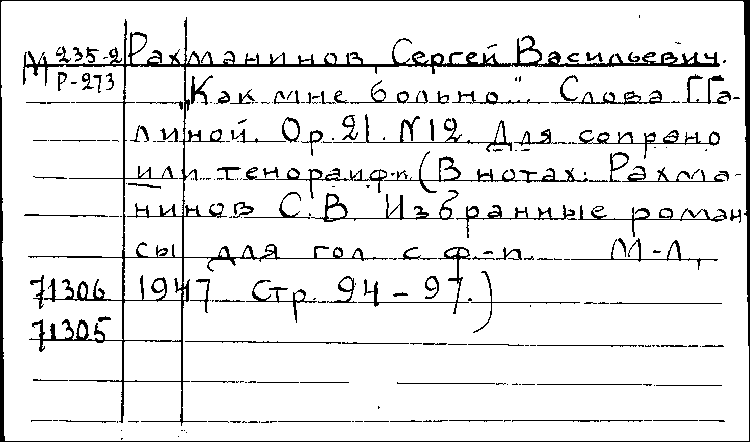 М 235-2 Рахманинов, Сергей Васильевич.
Р-273
„Как мне больно". Слова Г.Га-
линой. Op.21. N12. Для сопрано
или тенора и ф-п. (В нотах: Рахма-
нинов С.В. Избранные роман-
сы для гол. с ф.-п. М-Л,
71306 1947 Стр. 94-97.)
71305